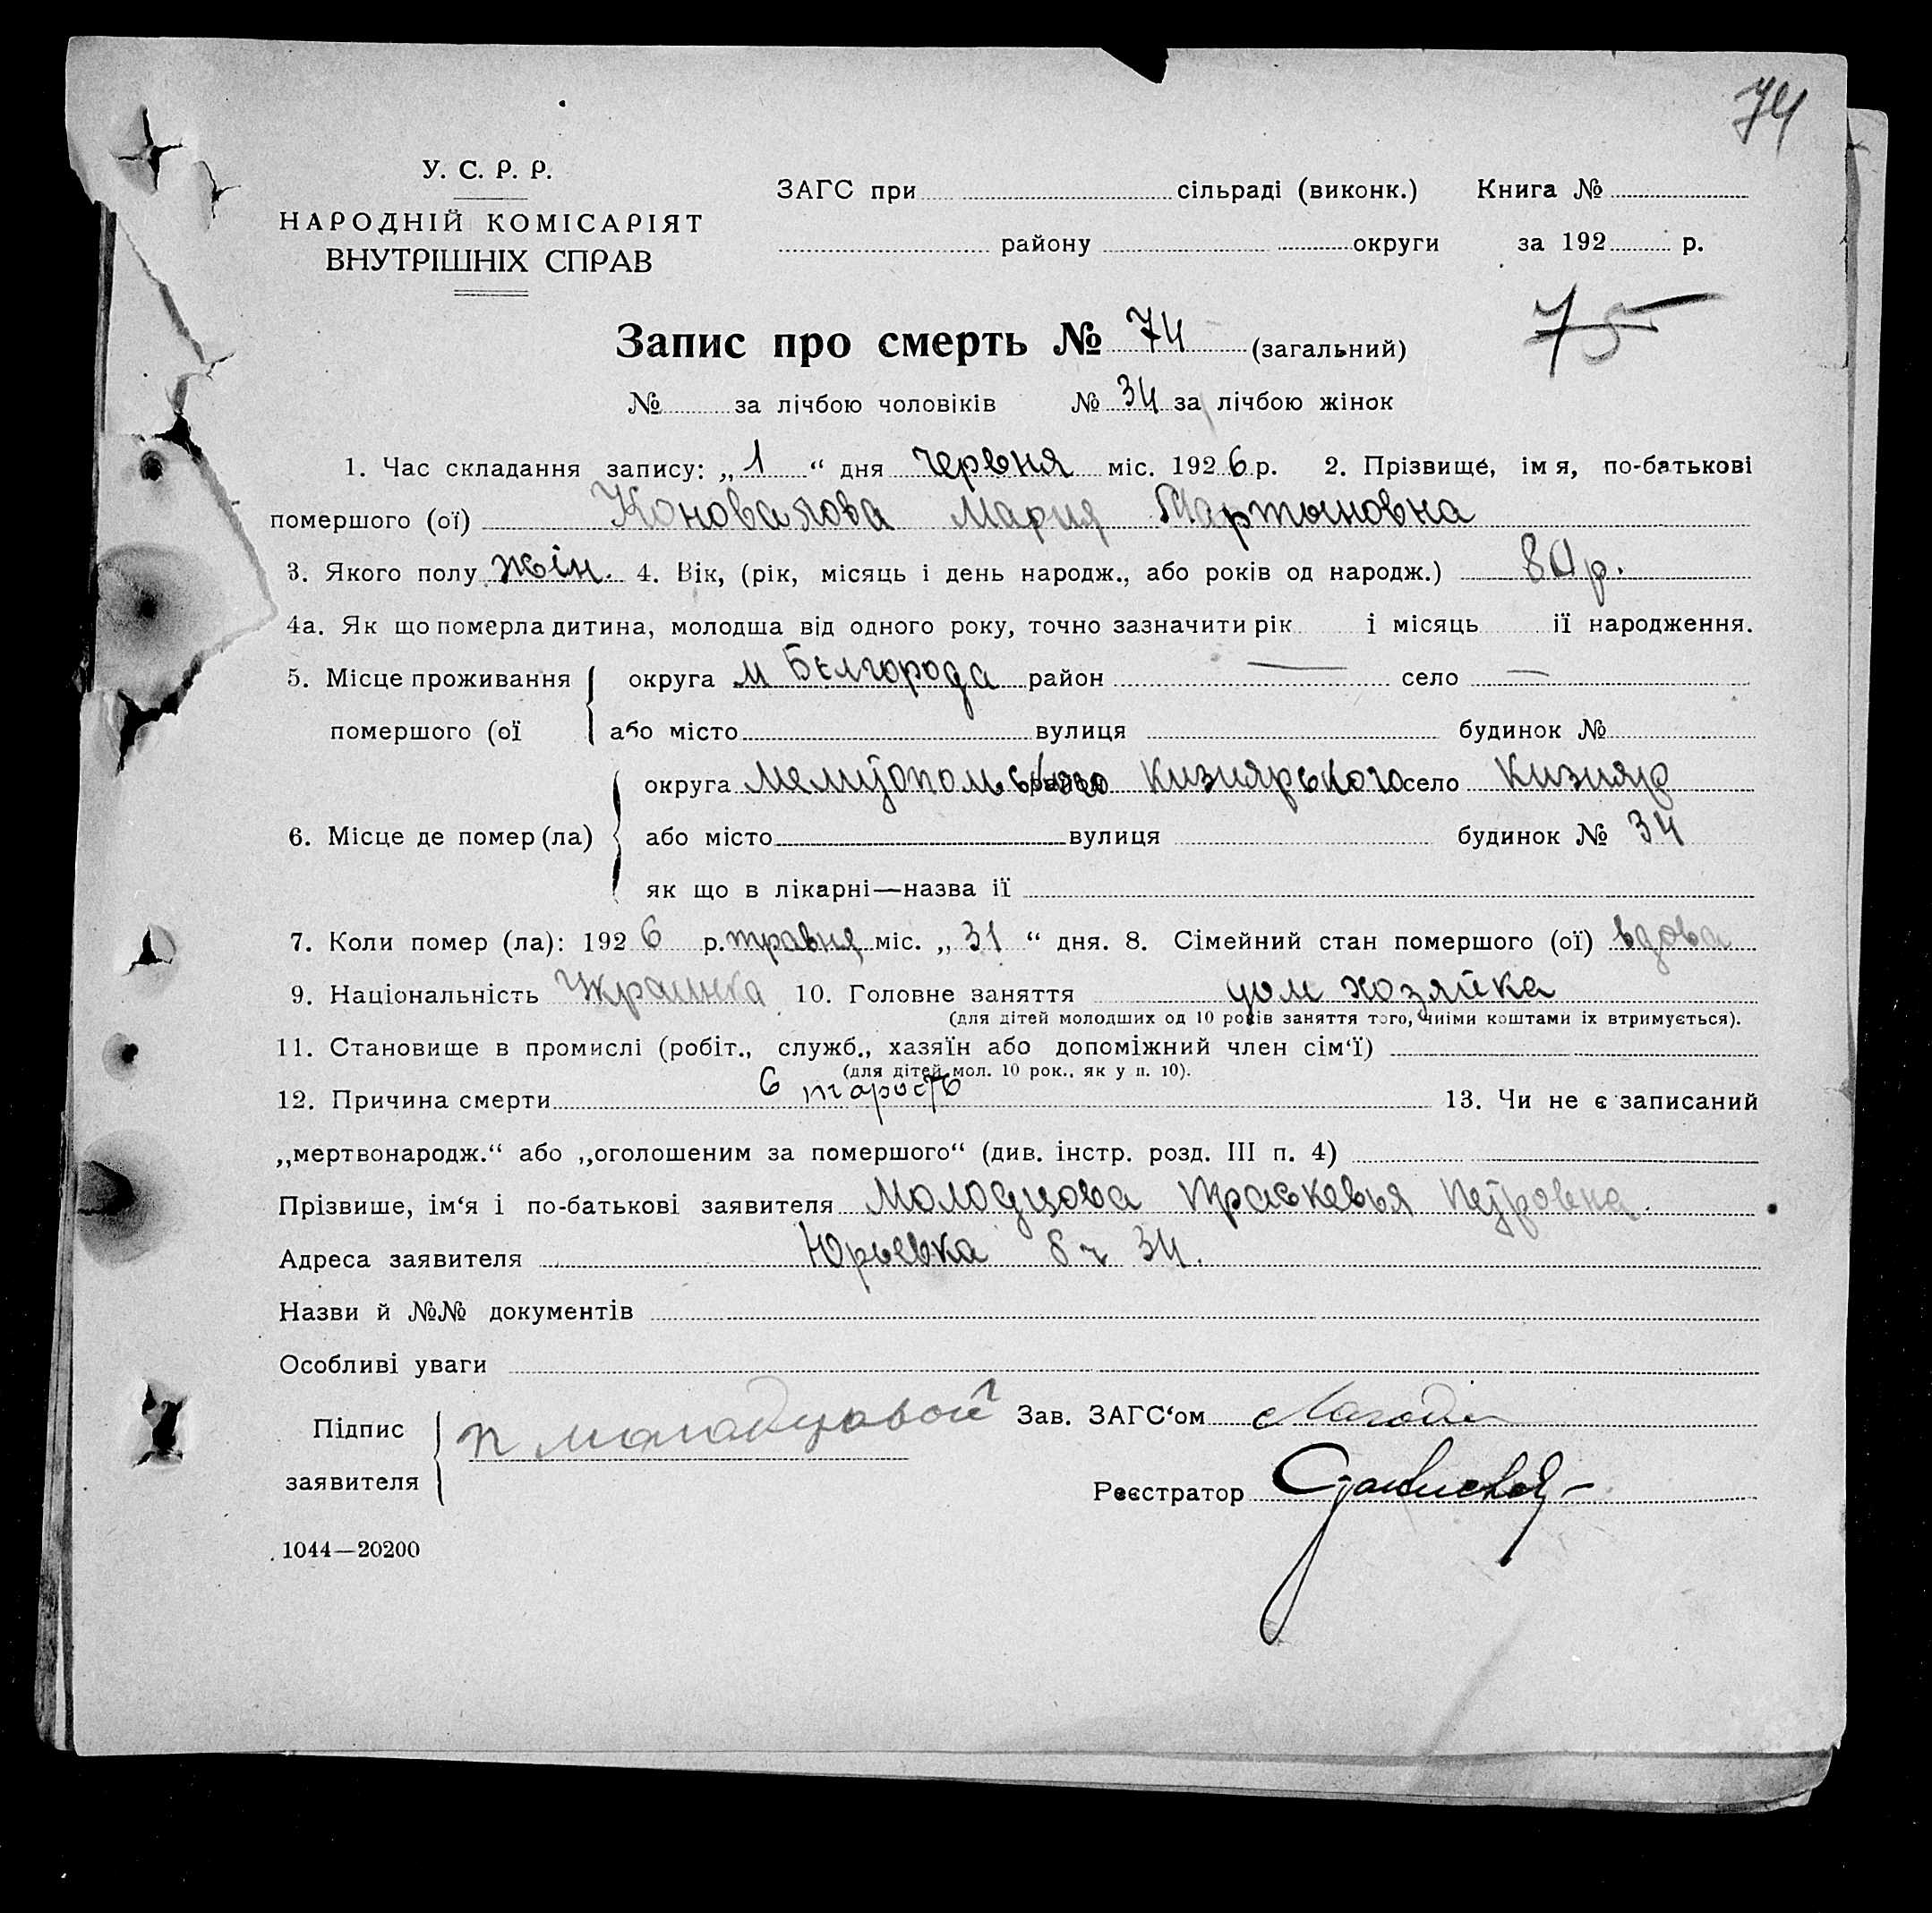 74
У. С. Р. Р.
НАРОДНІЙ КОМІСАРІЯТ
ВНУТРІШНІХ СПРАВ
ЗАГС при сільраді (виконк.) Книга №
району округи за 192 р.
Запис про смерть № 74 (загальний) 75
№ за лічбою чоловіків № 34 за лічбою жінок
1. Час складання запису: „ 1 “ дня червня міс. 1926 р. 2. Прізвище, імя, по-батькові
помершого (ої) Коновалова Мария Мартыновна
3. Якого полу жін. 4. Вік, (рік, місяць і день народж., або років од народж.) 80 р.
4а. Як що померла дитина, молодша від одного року, точно зазначити рік і місяць її народження.
5. Місце проживання округа м Бєлгорода район — село —
помершого (ої або місто вулиця будинок №
округа Мелитопольского район Кизиярського село Кизияр
6. Місце де помер (ла) або місто вулиця будинок № 34
як що в лікарні—назва її
7. Коли помер (ла): 1926 р. травня міс. „ 31 “ дня. 8. Сімейний стан помершого (ої) вдова
9. Національність Украинка 10. Головне заняття дом хозяйка
(для дітей молодших од 10 років заняття того, чиїми коштами їх втримується).
11. Становище в промислі (робіт., служб., хазяїн або допоміжний член сім‘ї)
(для дітей мол. 10 рок., як у п. 10).
12. Причина смерти старость 13. Чи не є записаний
„мертвонародж.“ або „оголошеним за помершого“ (див. інстр. розд. III п. 4)
Прізвише, ім‘я і по-батькові заявителя Молодцова Прасковья Петровна
Адреса заявителя Юрьевка 34.
Назви й №№ документів
Особливі уваги
Підпис
заявителя
п Молодцовой Зав. ЗАГС‘ом
Реєстратор
1044—20200